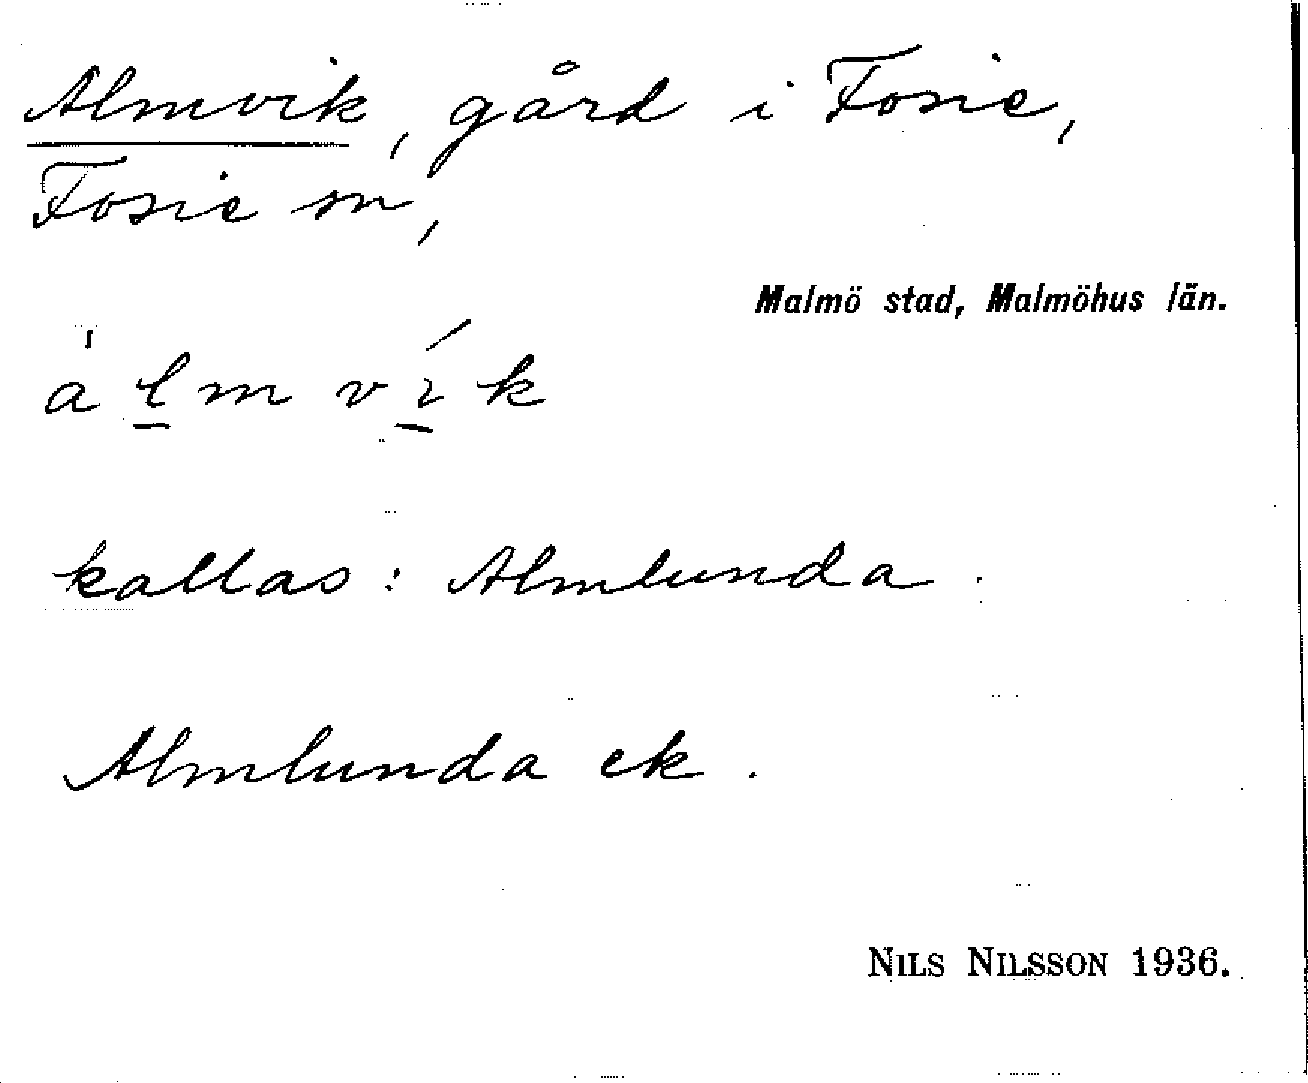 Almvik, gård i Fosie,
Fosie sn,
Malmö stad, Malmöhus län.
a̍l̲mví̲k
kallas: Almlunda.
Almlunda ek.
NILS NILSSON 1936.